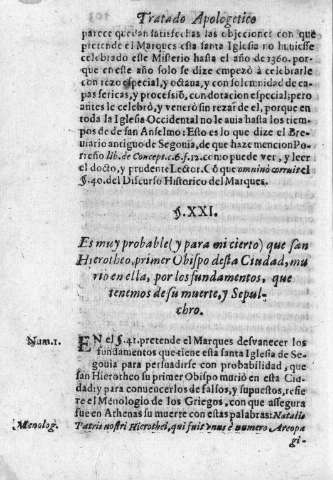 Tratado Apologetico
parece quedan satisfechas las objeciones con que
pretende el Marques esta santa Iglesia no huuiesse
celebrado este Misterio hasta el año de 1360. por-
que en este año solo se dize empezò à celebrarle
con rezo especial, y octaua, y con solemnidad de ca-
pas sericas, y processiõ, cõ dotacion especial; pero
antes le celebrò, y venerò sin rezar de el, porque en
toda la Iglesia Occidental no le auia hasta los tiem-
pos de de san Anselmo: Esto es lo que dize el Bre-
uiario antiguo de Segouia, de que haze mencion Por-
treño lib. de Concept. c. 6. §. 12. como puede ver, y leer
el docto, y prudente Lector. Cõ que omninò corruit el
§. 40. del Discurso Historico del Marques.
§. XXI.
Es muy probable (y para mi cierto) que san
Hierotheo, primer Obispo desta Ciudad, mu
riò en ella, por los fundamentos, que
tenemos de su muerte, y Sepul-
chro.
Num. 1.
EN el §. 41. pretende el Marques desvanecer los
fundamentos que tiene esta santa Iglesia de Se-
gouia para persuadirse con probabilidad, que
san Hierotheo su primer Obispo muriò en esta Ciu-
dad; y para conuencerlos de falsos, y supuestos, refie-
re el Menologio de los Griegos, con que assegura
fue en Athenas su muerte con estas palabras: Natalis
Menolog.
Patris nostri Hierothei, qui fuit vnus è numero Areopa
gi-